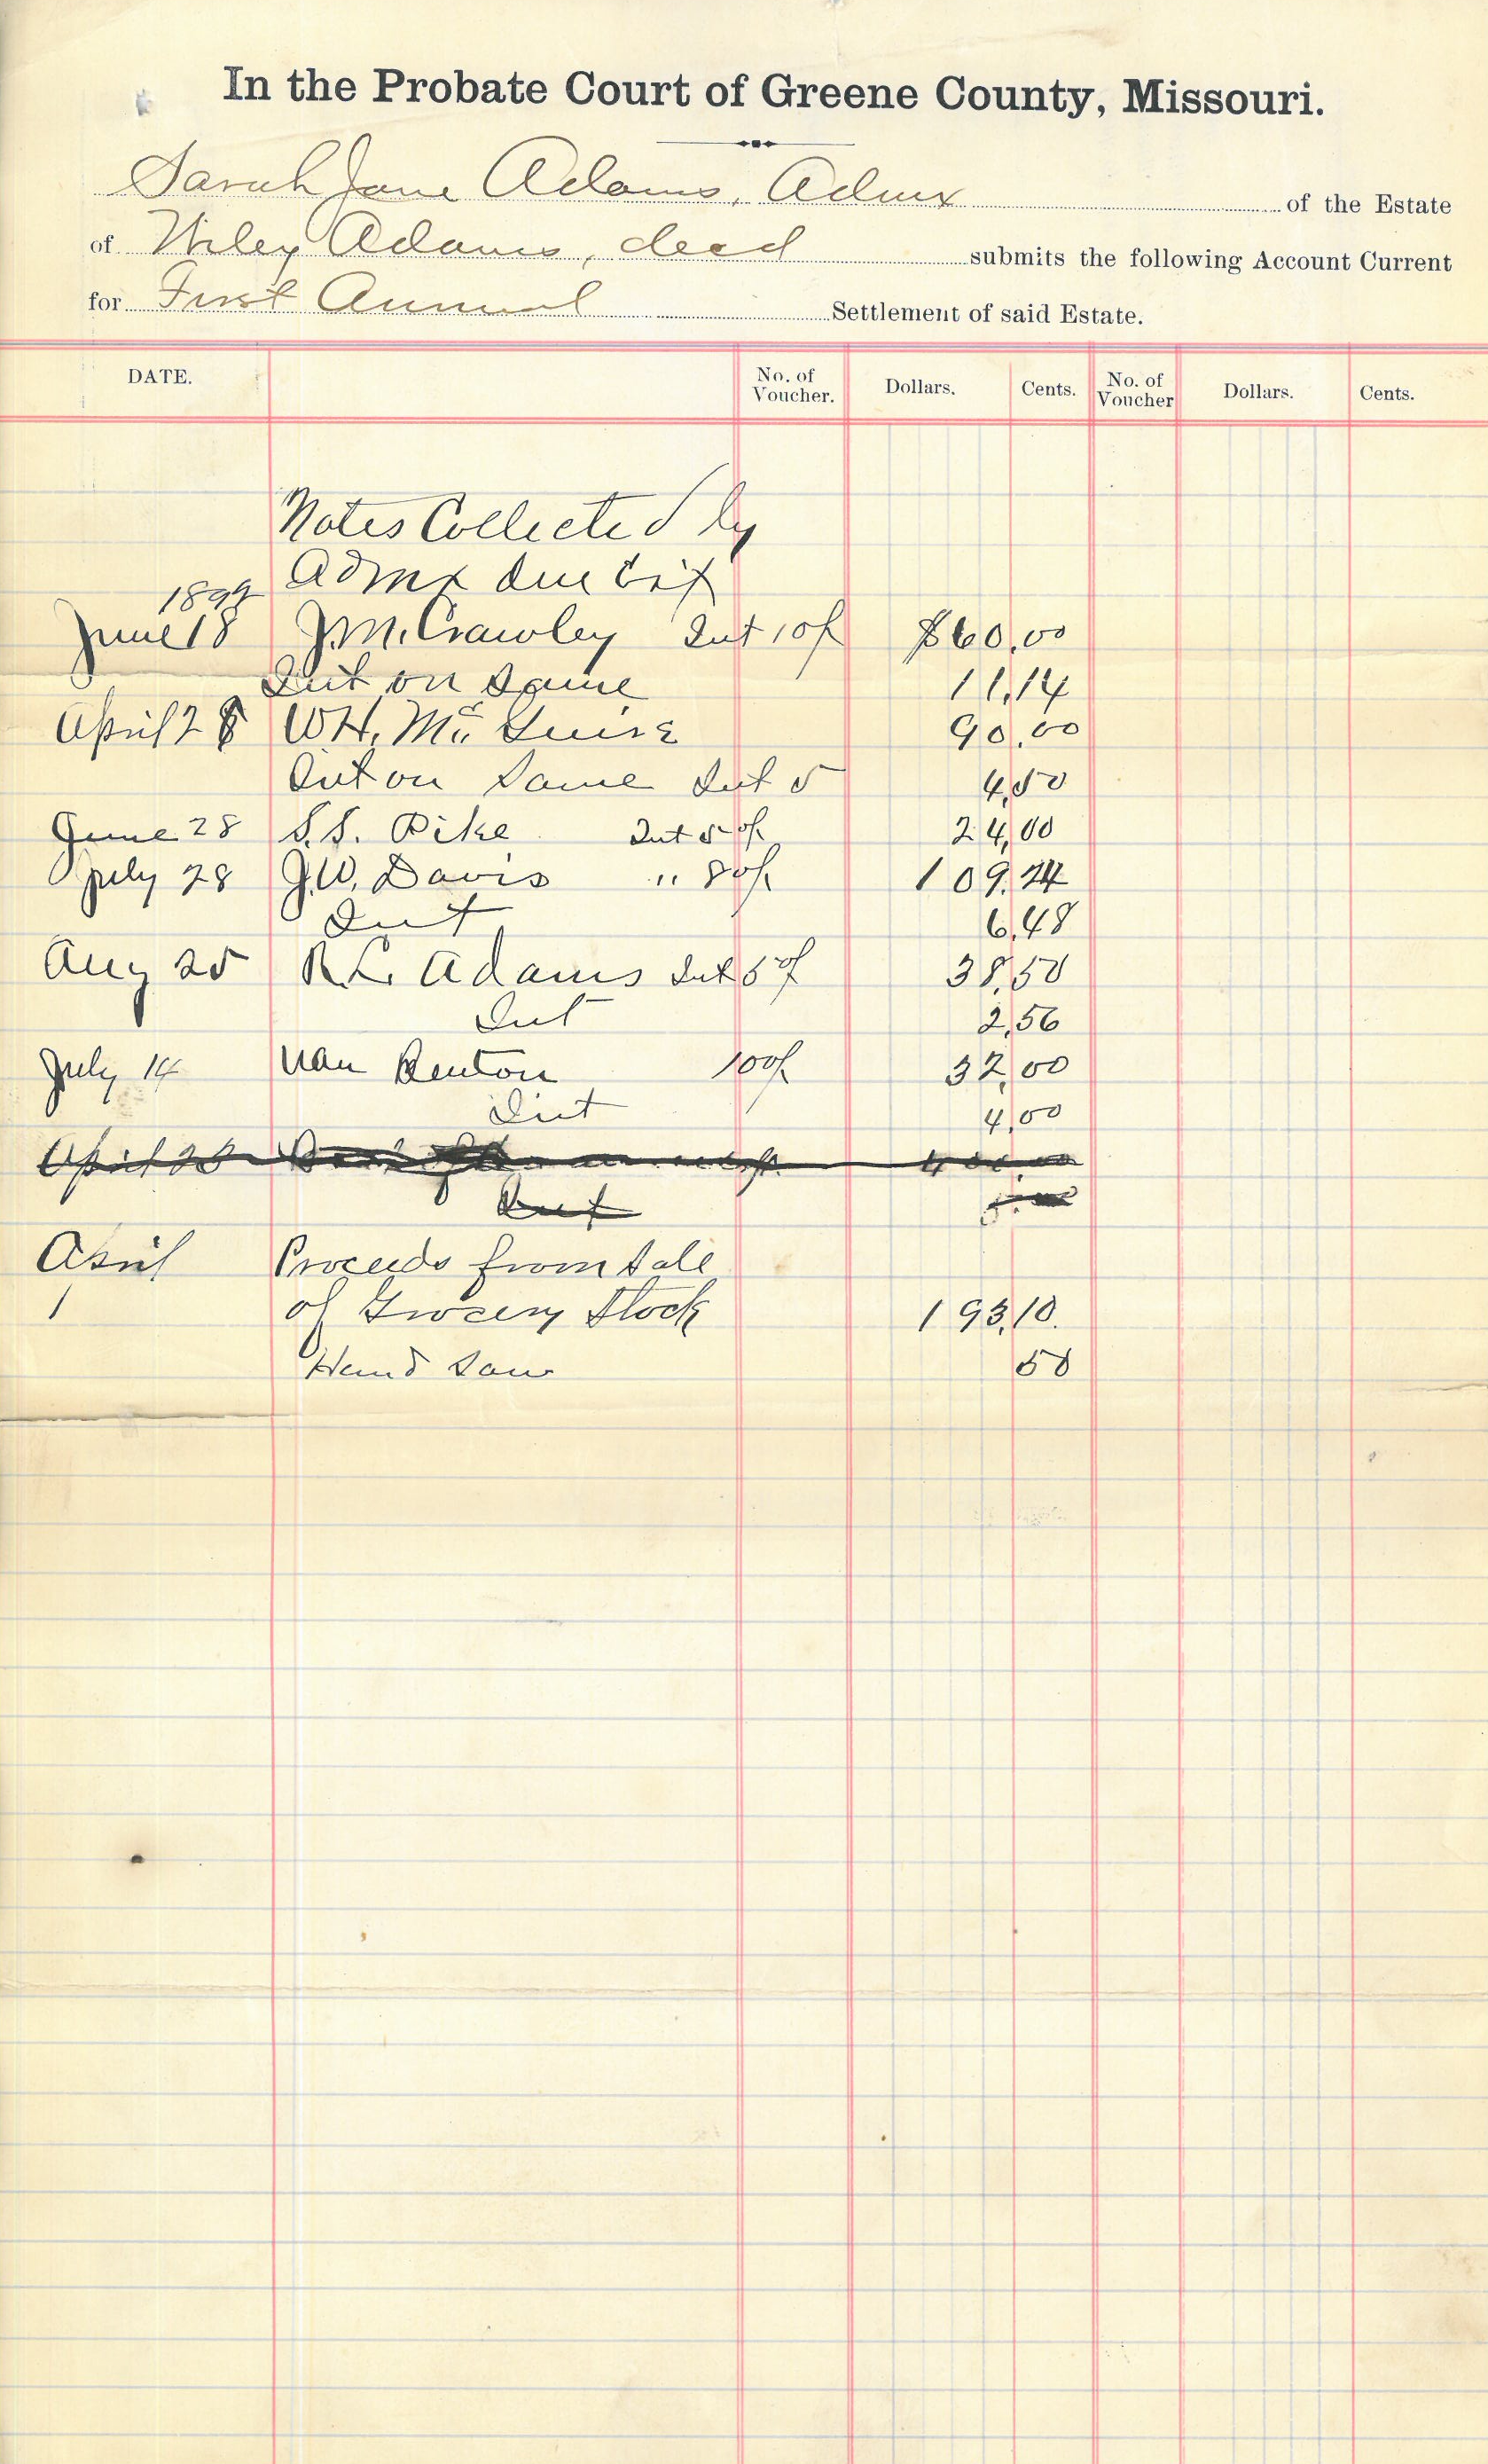 In the Probate Court of Greene County, Missouri.
Sarah Jane Adams, Admx of the Estate
of Wiley Adams, decd submits the following Account Current
for First Annual Settlement of said Estate.
DATE. No. of Voucher. Dollars. Cents. No. of Voucher Dollars. Cents.
Notes Collected by
Admx due Est
1899
June 18 J.M. Crawley Int 10% $60.00
Int on same 11.14
April 28 W.H. McGuire 90.00
Int on same Int 5 4.50
June 28 S.S. Pike Int 5% 24.00
July 28 J.W. Davis " 8% 109.24
Int 6.48
Aug 25 R.L. Adams Int 5% 38.50
Int 2.56
July 14 Van Benton 10% 32.00
Int 4.00
April 28
Int
April Proceeds from sale
1 of Grocery Stock 193.10.
Hand Saw 50